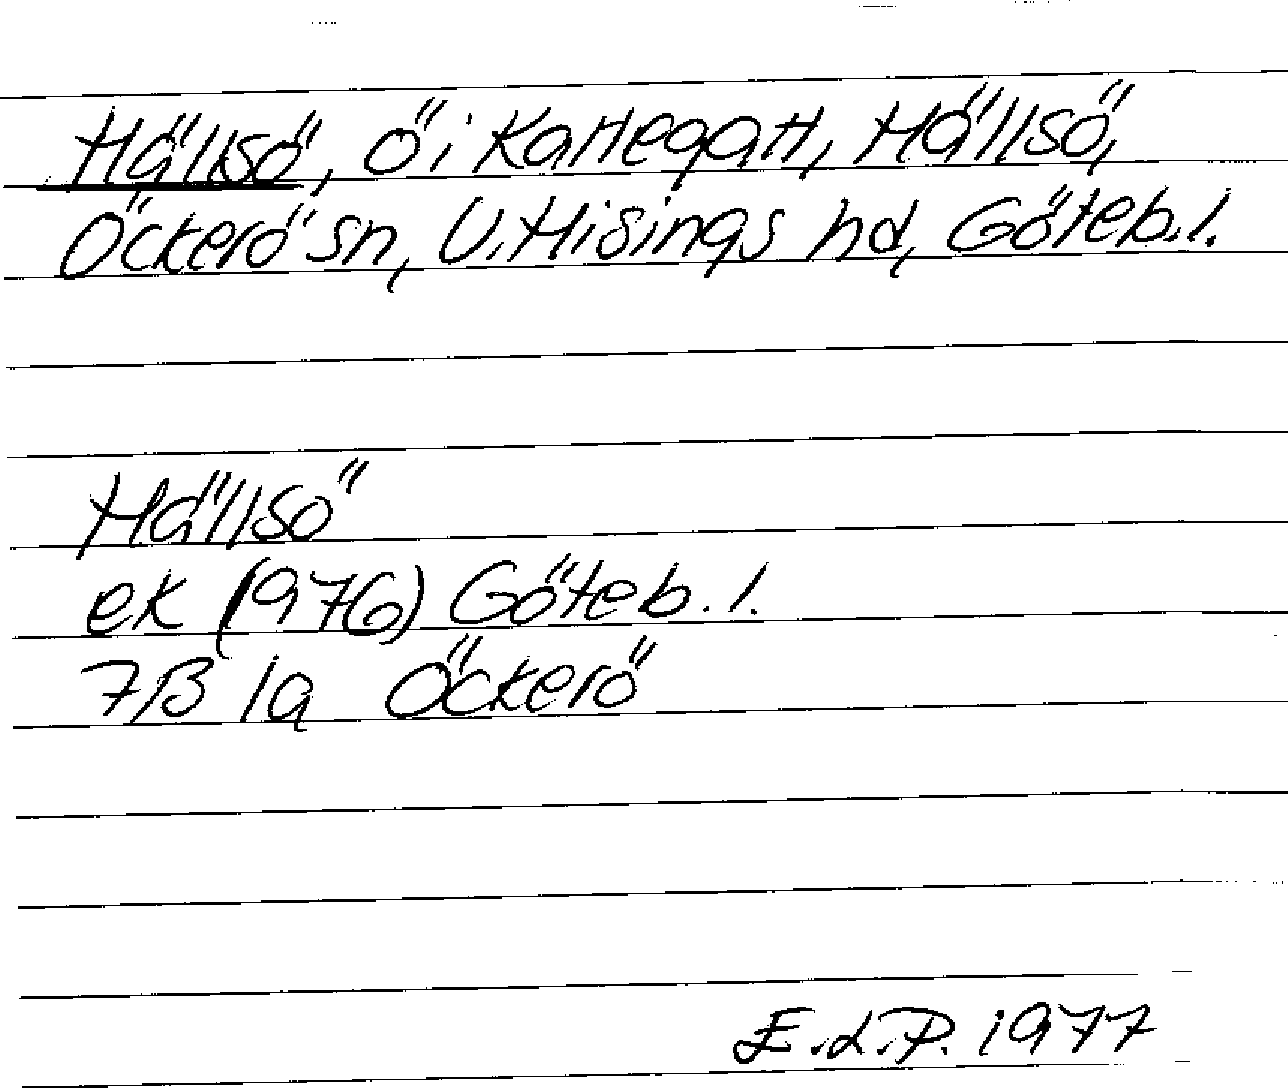 Hällsö, ö i Kattegatt, Hällsö,
Öckerö sn, V. Hisings hd, Göteb. l.
Hällsö
ek (1976) Göteb. l.
7B 1a Öckerö
E.L.P. 1977